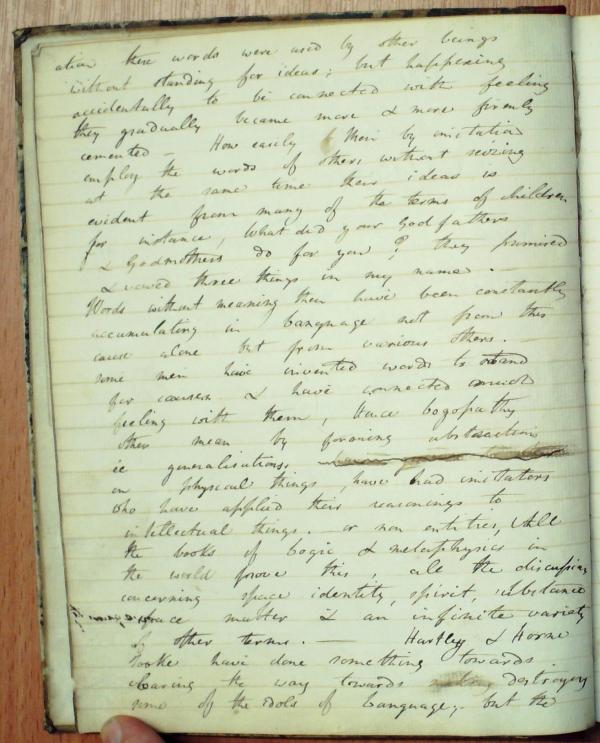 ation these words were used by other beings
without standing for ideas; but happening
accidentally to be connected with feeling
they gradually became more & more firmly
cemented — How easily then by imitation
employ the words of others without seizing
at the same time their ideas is
evident from many of the terms of children
for instance, What did your Godfathers
& Godmothers do for you? they promised
& vowed three things in my name.
Words without meaning then have been constantly
accumulating in Language not from this
cause alone but from various others.
some men have invented words to stand
for causes & have connected much
feeling with them, Hence
other men by forming abstractions
ie generalisations
on physical things, have had imitators
who have applied their reasonings to
intellectual things. or non entities, All
the books of Logic & metaphysics in
the world prove this, all the discussions
concerning space identity, spirit, substance
matter & an infinite variety
of other terms. — Hartley & Horne
Tooke have done something towards
clearing the way towards destroying
some of the idols of Language, but the